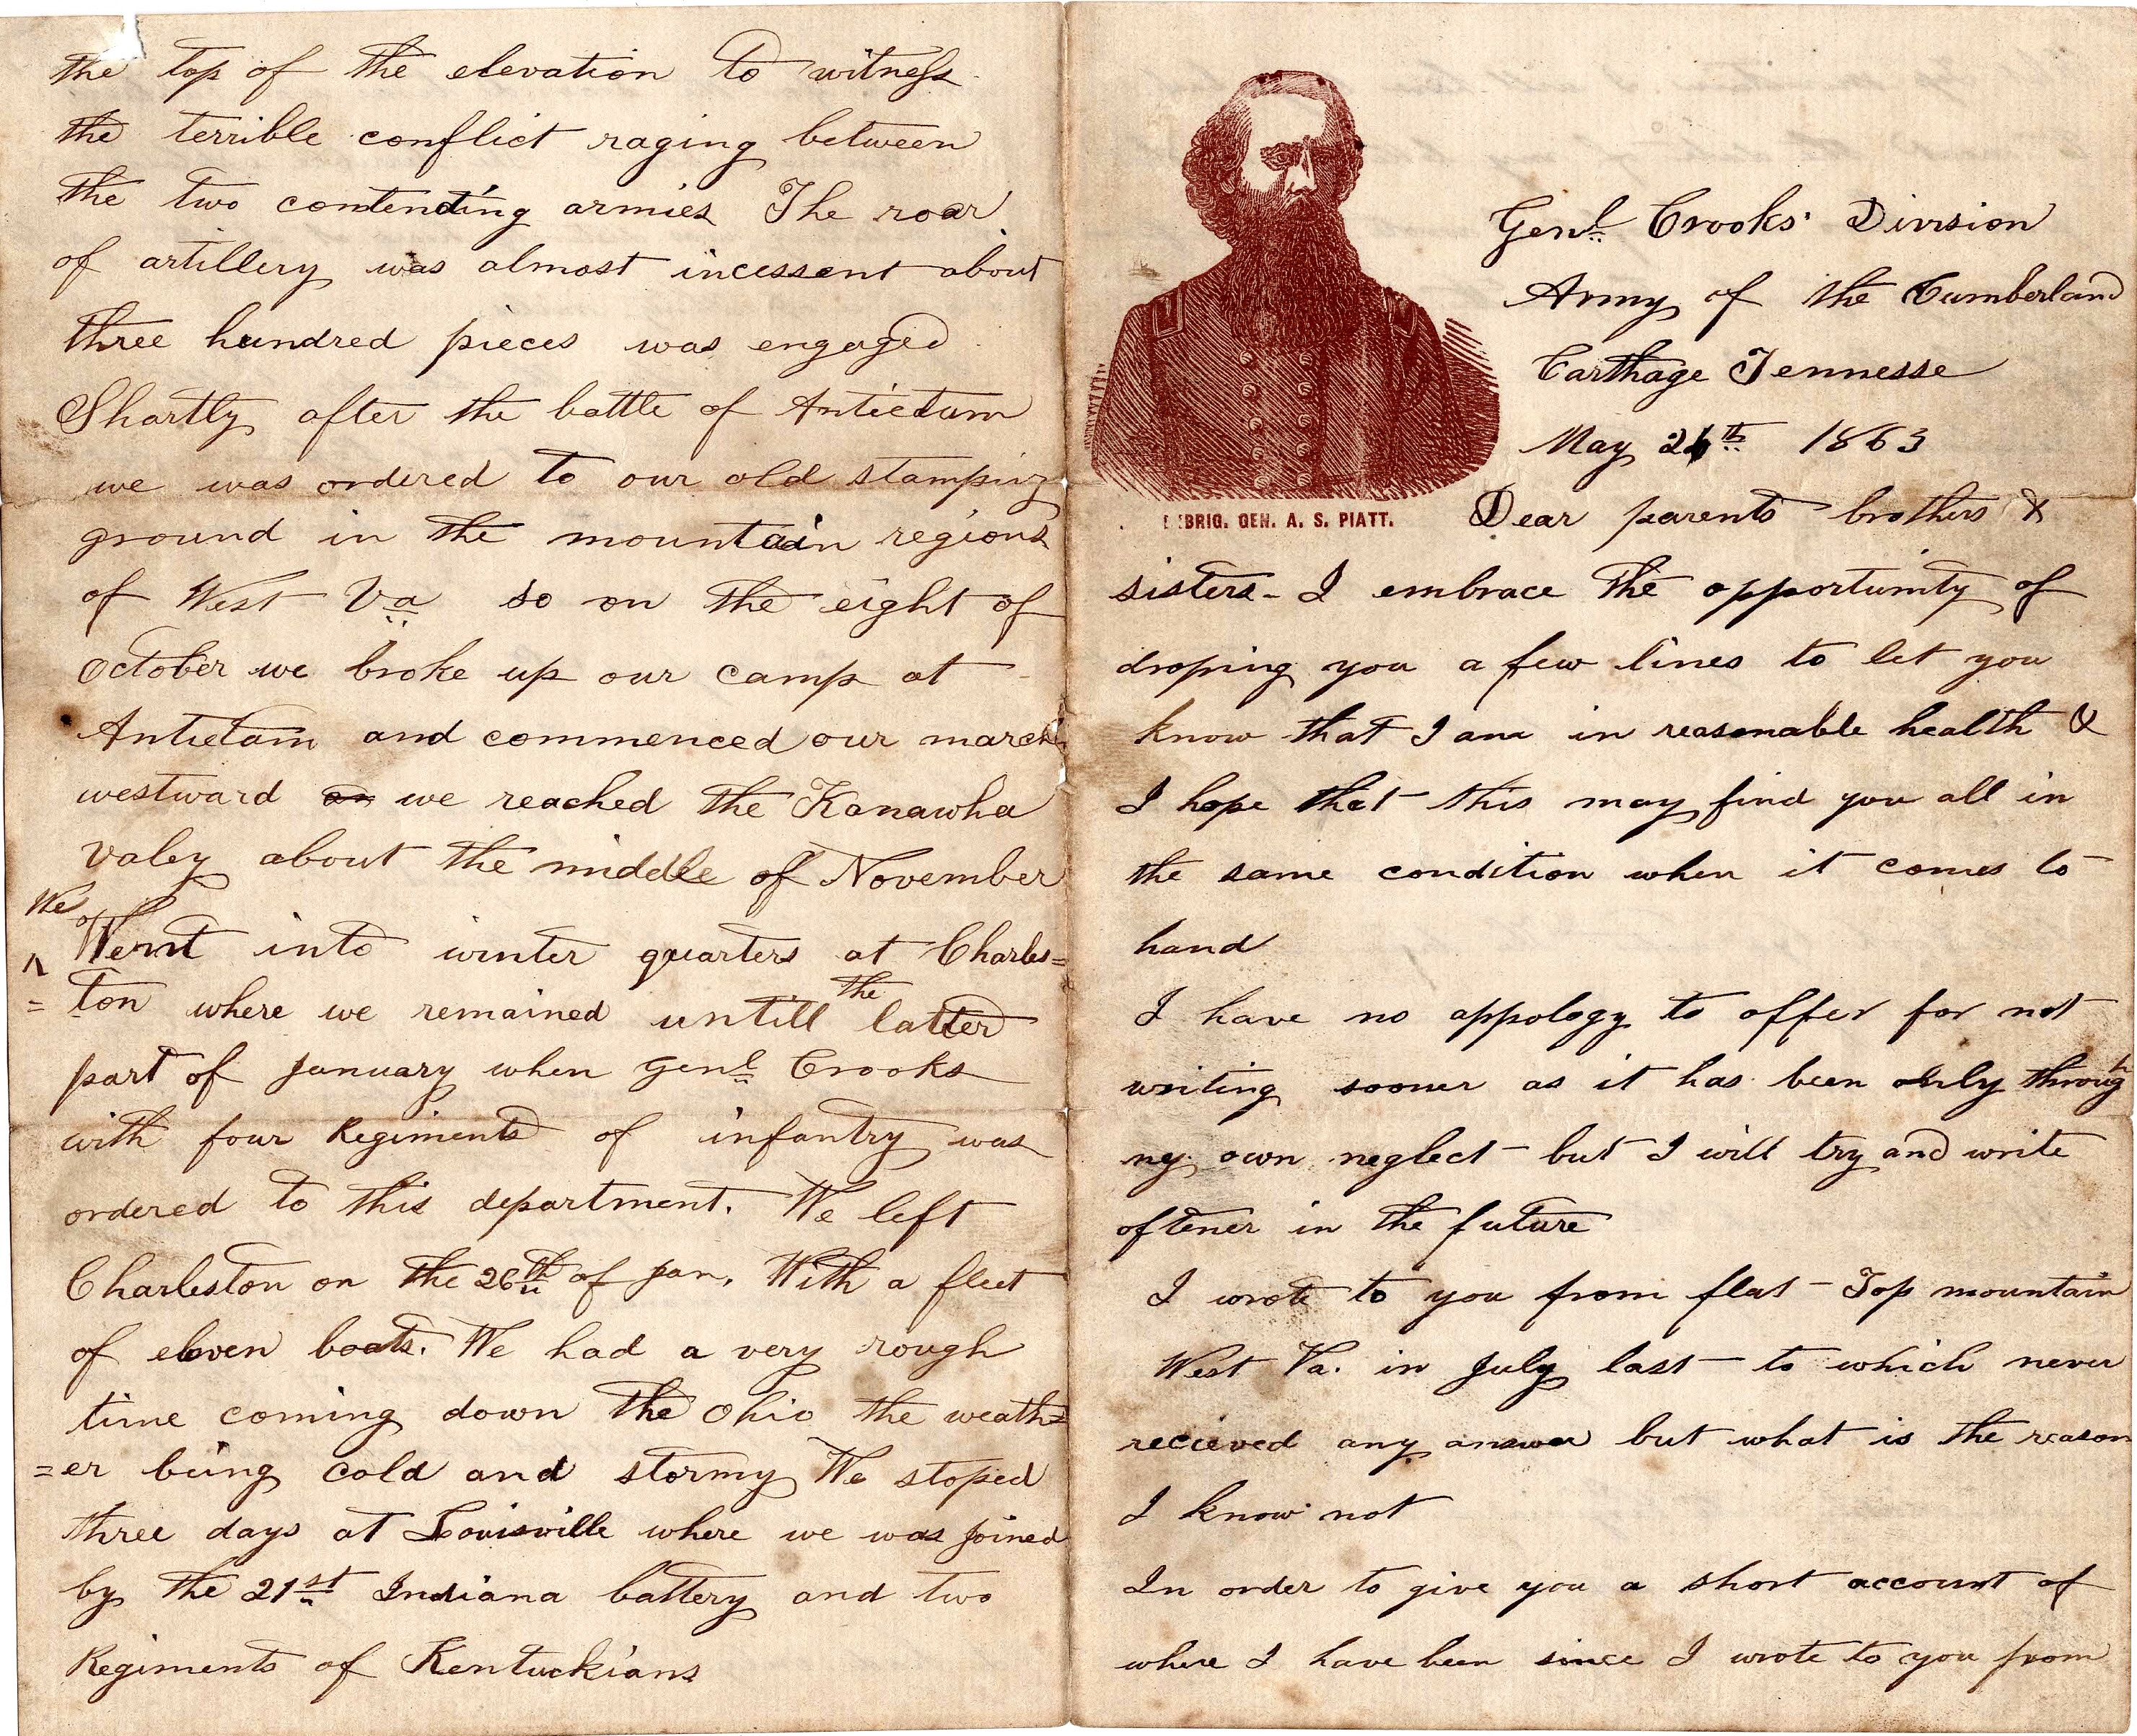 the top of the elevation to witness
the terrible conflict raging between
the two contending armies The roar
of artillery was almost incessent about
three hundred pieces was engaged
Shortly after the battle of Antietum
we was ordered to our old stamping
ground in the mountain regions
of West Va so on the eight of
October we broke up our camp at
Antietam and commenced our march
westward we reached the Kanawha
Valey about the middle of November
We
Went into winter quarters at Charles=
=ton where we remained untill the latter
part of January when Genl Crooks
with four Regiments of infantry was
ordered to this department. We left
Charleston on the 26th of Jan, With a fleet
of eleven boats. We had a very rough
time coming down the Ohio the weath=
=er being cold and stormy We stoped
three days at Louisville where we was joined
by the 21st Indiana battery and two
Regiments of Kentuckians
BRIG. GEN. A. S. PIATT.
Genl Crooks' Division
Army of the Cumberland
Carthage Tennesse
May 1863
Dear parents brothers &
sisters- I embrace the opportunity of
droping you a few lines to let you
know that I am in reasonable health &
I hope that this may find you all in
the same condition when it comes to
hand
I have no appology to offer for not
writing sooner as it has been only through
my own neglect but I will try and write
oftener in the future
I wrote to you from flat Top mountain
West Va. in July last to which never
recieved any answer but what is the reason
I know not
In order to give you a short account of
where I have been since I wrote to you from